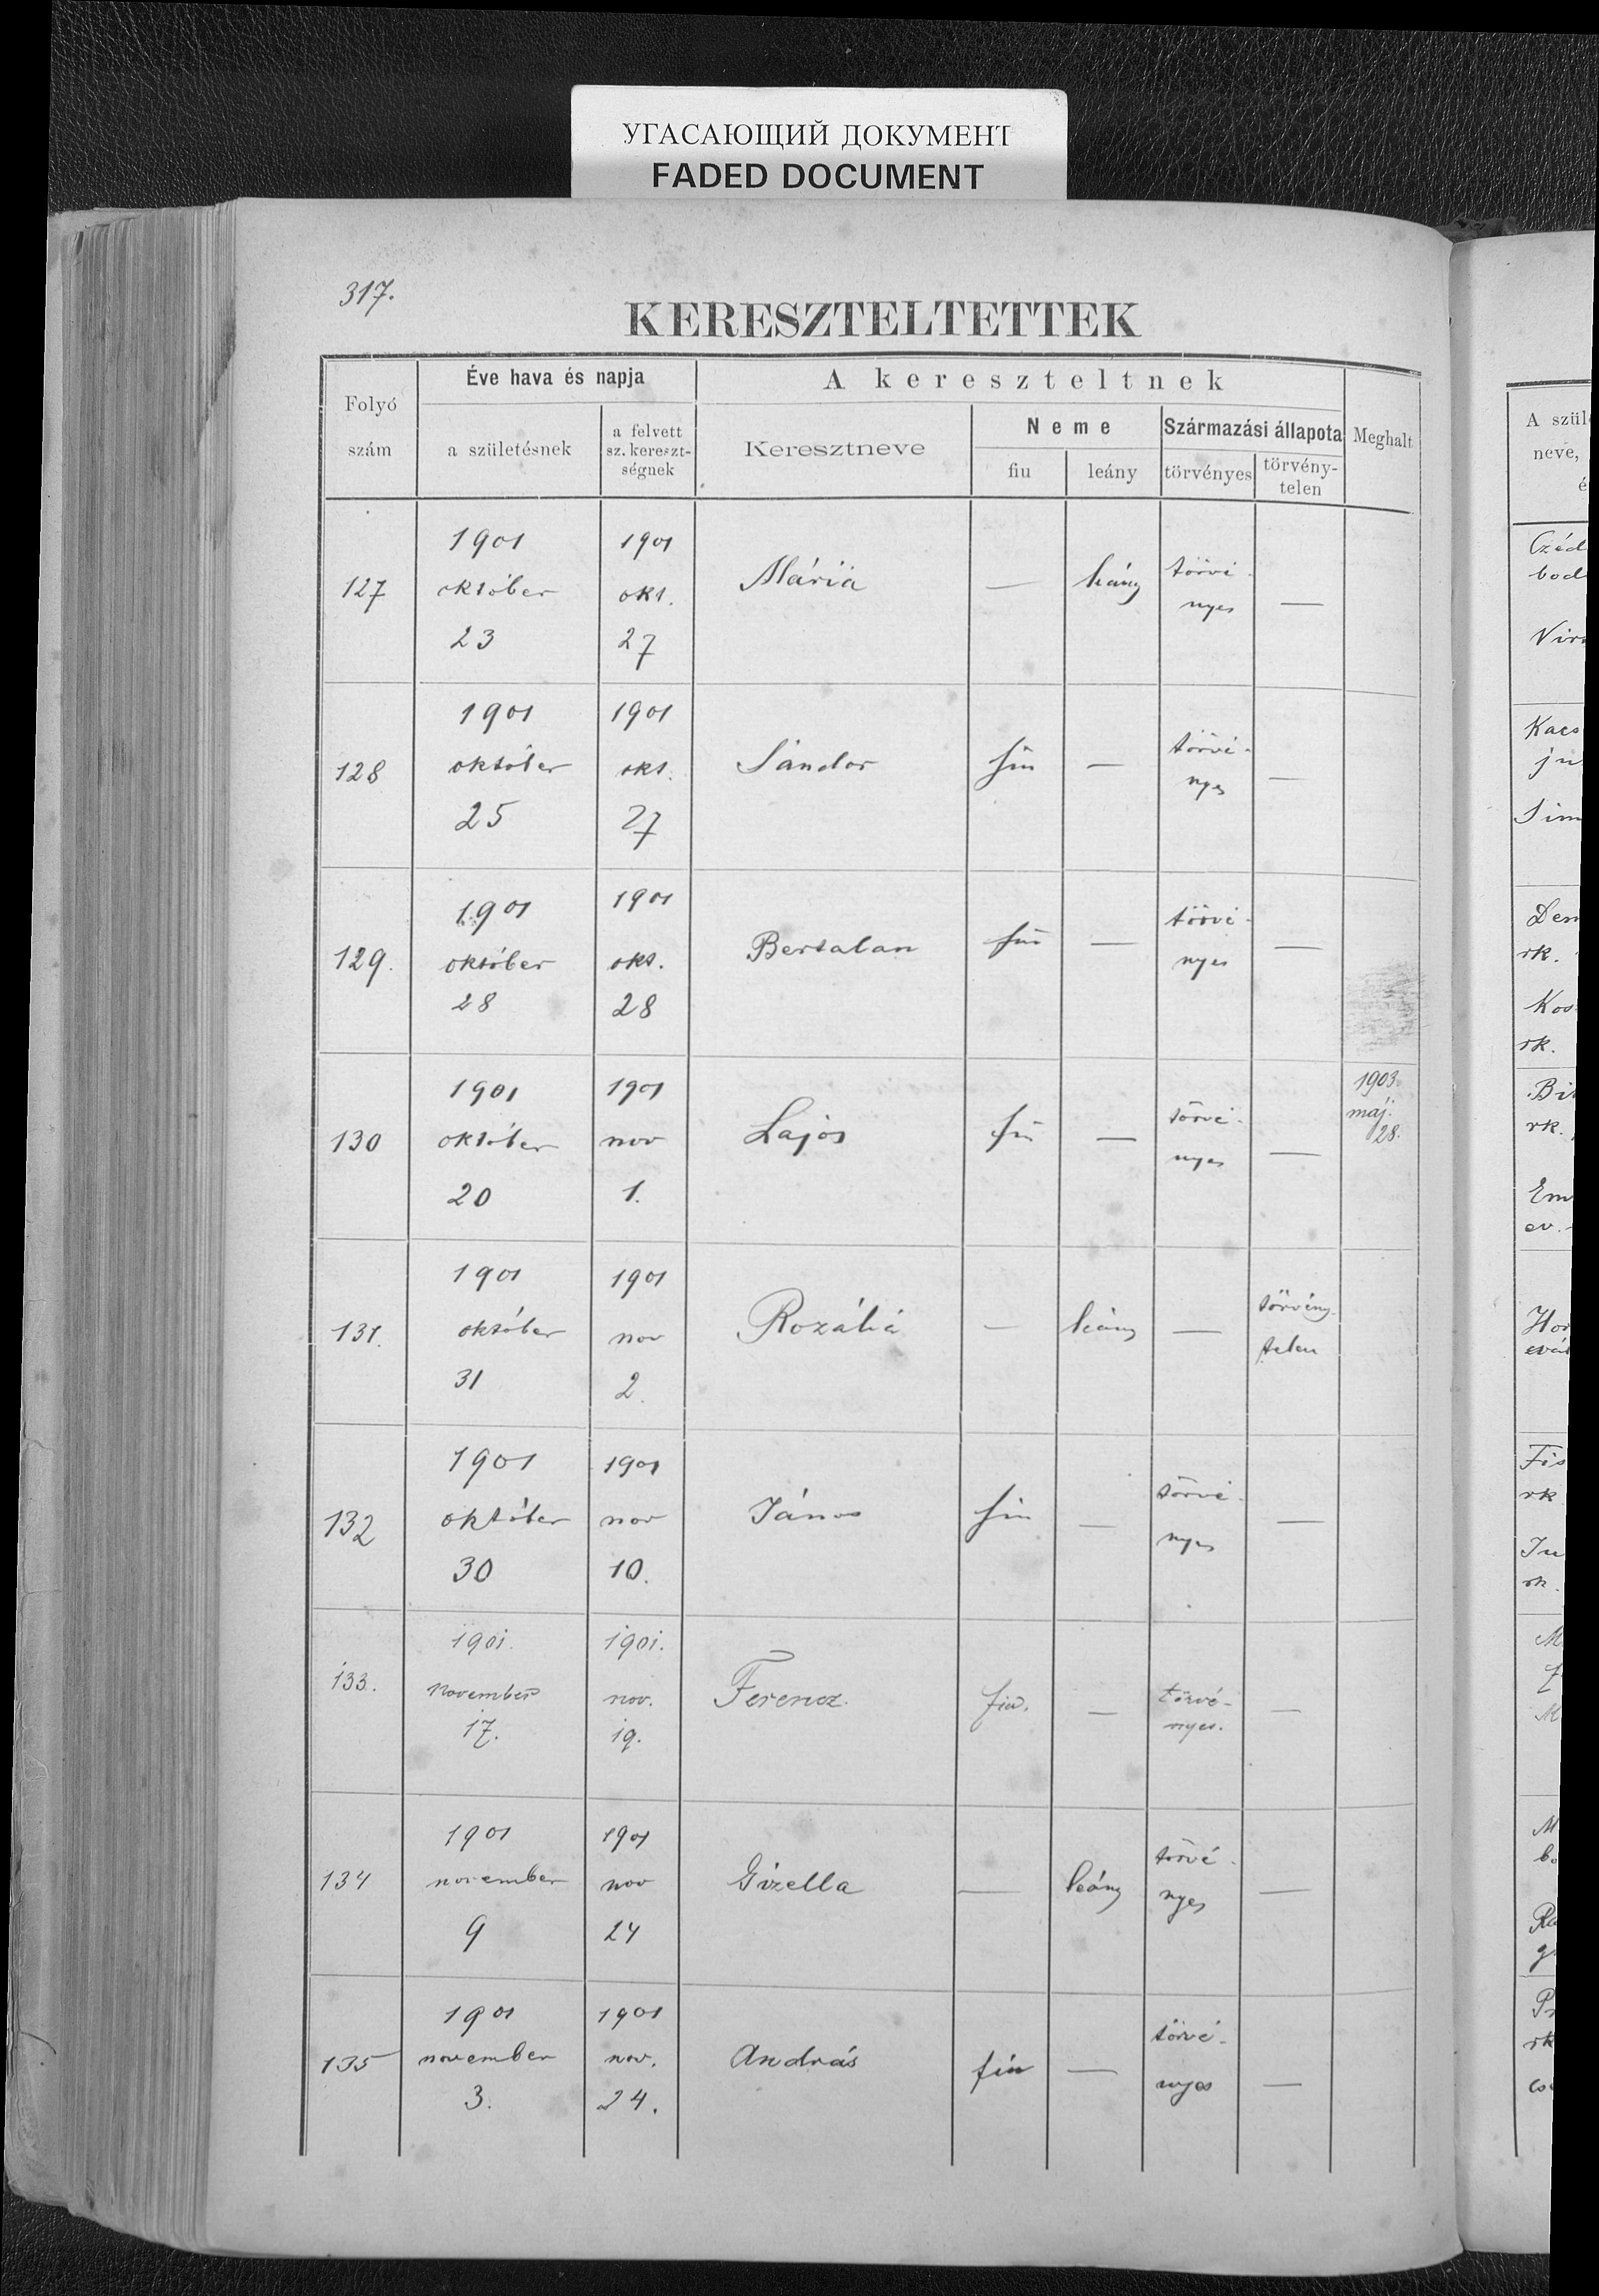 УГАСАЮЩИЙ ДОКУМЕНТ
FADED DOCUMENT
317.
KERESZTELTETTEK
Folyó szám
Éve hava és napja
a születésnek
a felvett sz. kereszt-ségnek
A kereszteltnek
Keresztneve
Neme
fiu
leány
Származási állapota
törvényes
törvény-telen
Meghalt
127
1901 október 23
1901 okt. 27
Mária
—
leány
törvé-nyes
—
128
1901 október 25
1901 okt. 27
Sándor
fiu
—
törvé-nyes
—
129.
1901 október 28
1901 okt. 28
Bertalan
fiu
—
törvé-nyes
—
130
1901 október 20
1901 nov 1.
Lajos
fiu
—
törvé-nyes
—
1903. máj. 28.
131.
1901 október 31
1901 nov 2
Rozália
—
leány
—
törvény-telen
132
1901 október 30
1901 nov 10.
János
fiu
—
törvé-nyes
—
133.
1901. november 17.
1901. nov. 19.
Ferencz.
fiu.
—
törvé-nyes.
—
134
1901 november 9
1901 nov 24
Gizella
—
leány
törvé-nyes
—
135
1901 november 3.
1901 nov. 24.
András
fiu
—
törvé-nyes
—
A szül
neve,
é
Czéd
bod
Kacs
ju
Sim
Den
rk.
Kos
rk.
Bi
rk.
Em
ev.
Hor
Fis
rk
rk.
M
M
M
rk